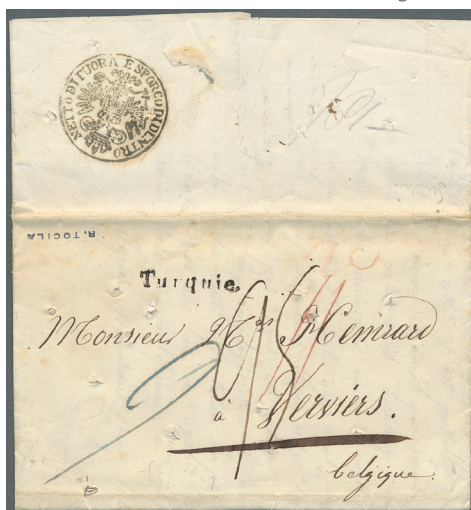 NETTO DI FUORA E SPORCO DI DENTRO
R. TOCILA
Turquie.
Monsieur
à Verviérs.
belgique.